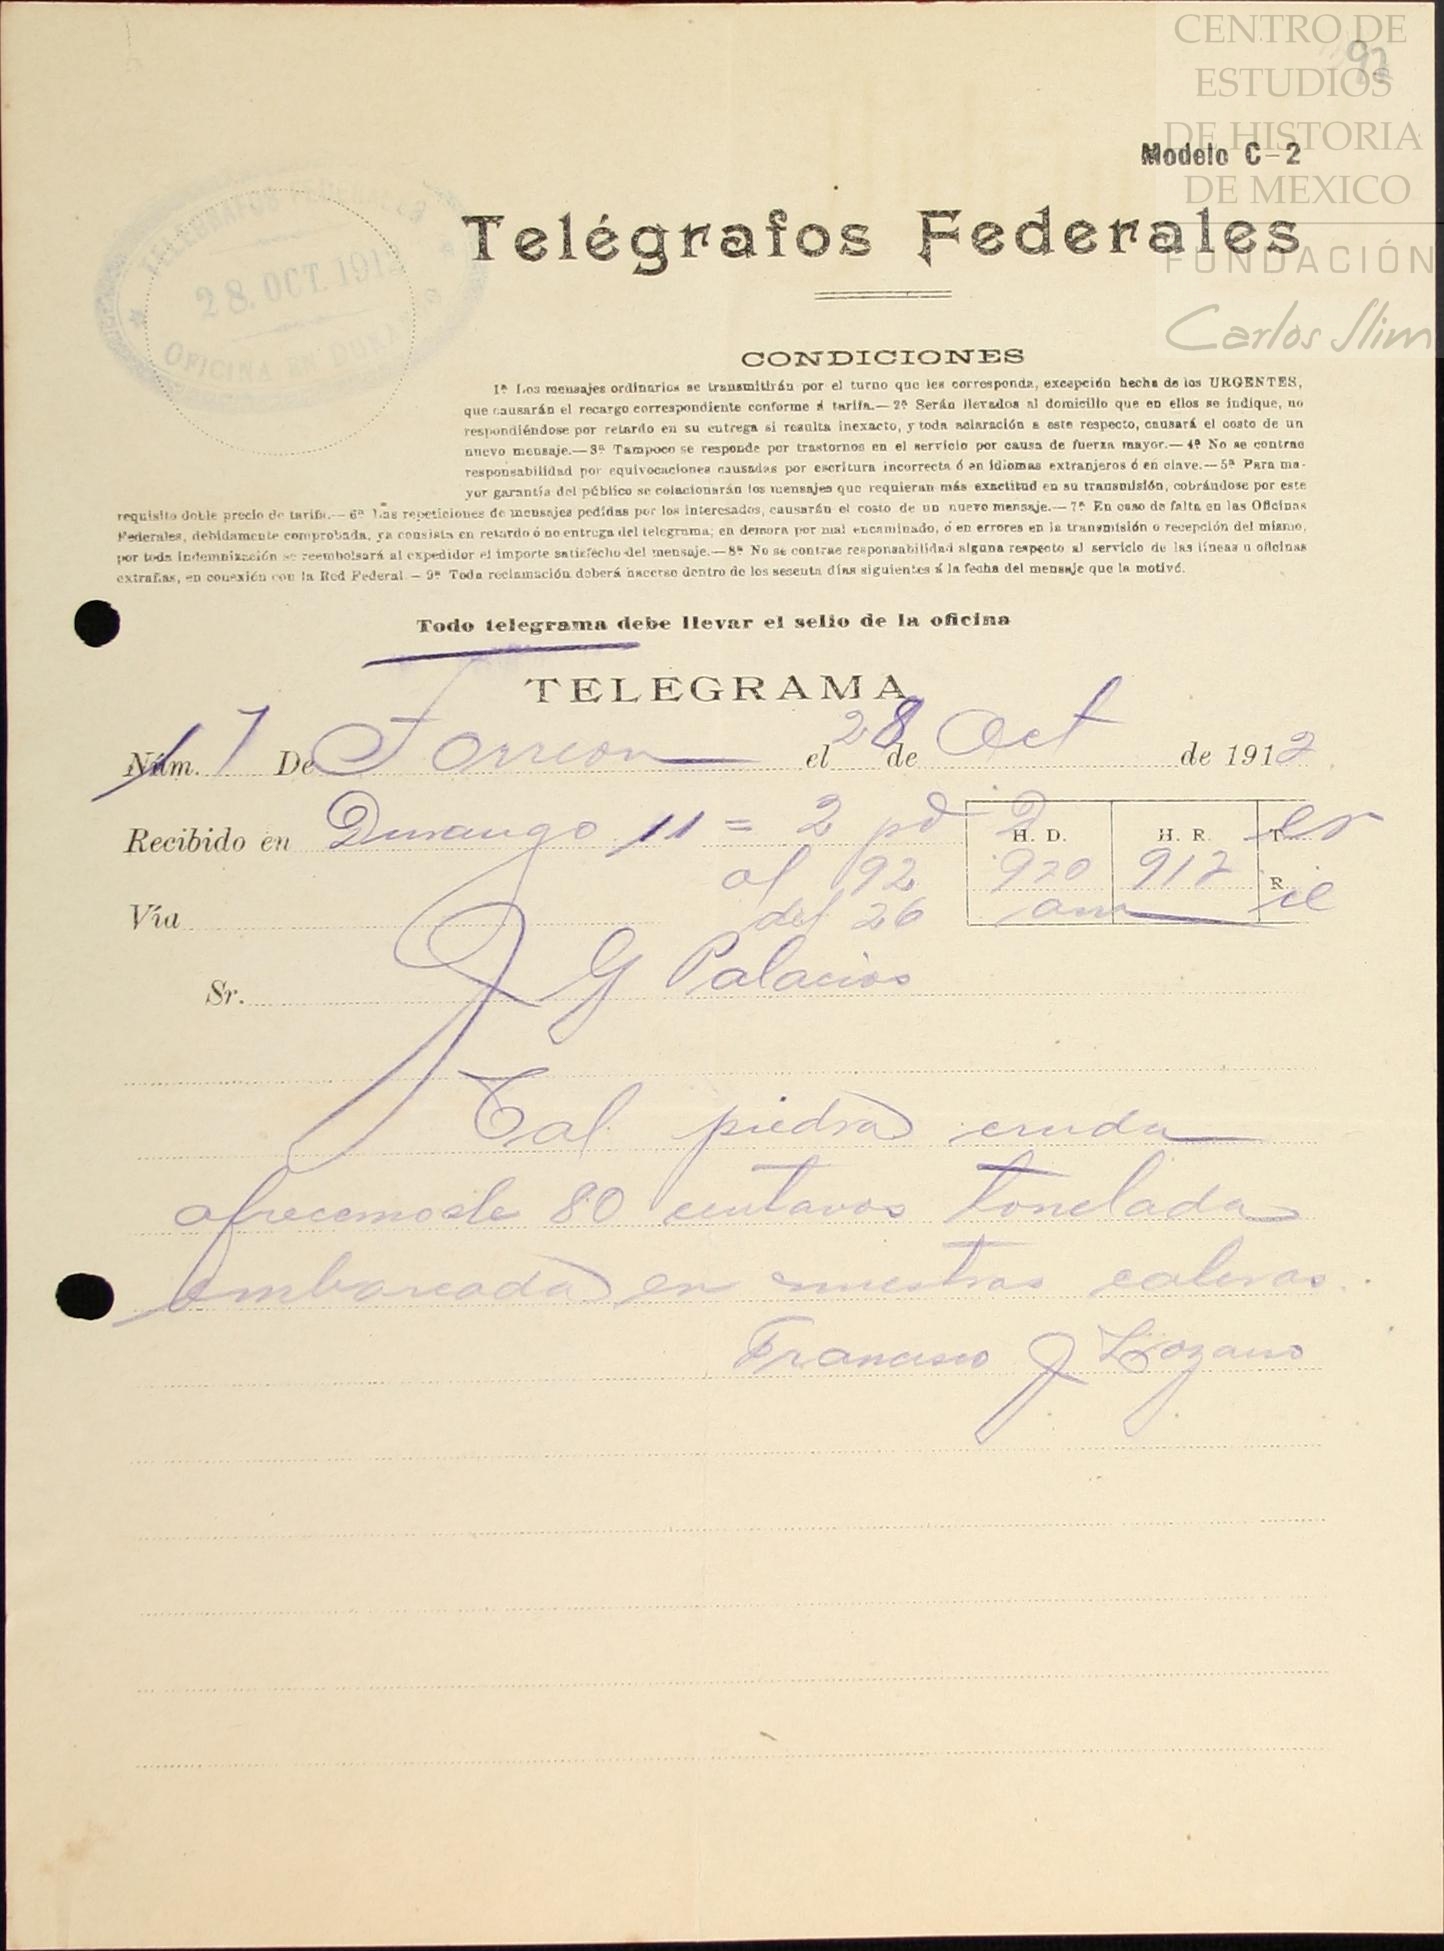 CENTRO DE
ESTUDIOS
DE HISTORIA
DE MEXICO
FUNDACIÓN
Carlos Slim
92
Modelo C-2
TELEGRAFOS FEDERALES
28. OCT. 1912
OFICINA EN DURANGO
Telégrafos Federales
CONDICIONES
1ª Los mensajes ordinarios se transmitirán por el turno que les corresponda, excepción hecha de los URGENTES,
que causarán el recargo correspondiente conforme á tarifa.—2ª Serán llevados al domicilio que en ellos se indique, no
respondiéndose por retardo en su entrega si resulta inexacto, y toda aclaración a este respecto, causará el costo de un
nuevo mensaje.—3ª Tampoco se responde por trastornos en el servicio por causa de fuerza mayor.—4ª No se contrae
responsabilidad por equivocaciones causadas por escritura incorrecta ó en idiomas extranjeros ó en clave.—5ª Para ma-
yor garantía del público se colacionarán los mensajes que requieran más exactitud en su transmisión, cobrándose por este
requisito doble precio de tarifa.—6ª Las repeticiones de mensajes pedidas por los interesados, causarán el costo de un nuevo mensaje.—7ª En caso de falta en las Oficinas
Federales, debidamente comprobada, ya consista en retardo ó no entrega del telegrama; en demora por mal encaminado, ó en errores en la transmisión o recepción del mismo,
por toda indemnización se reembolsará al expedidor el importe satisfecho del mensaje.—8ª No se contrae responsabilidad alguna respecto al servicio de las líneas u oficinas
extrañas, en conexión con la Red Federal.—9ª Toda reclamación deberá hacerse dentro de los sesenta días siguientes á la fecha del mensaje que la motivó.
Todo telegrama debe llevar el sello de la oficina
TELEGRAMA
Núm. 7 De Torreon el 28 de Oct de 1912
Recibido en Durango 11 = 2 pd 2 H. D. H. R. T. er
al 92 920 912 R. il
Vía del 26 am
Sr. J G Palacios
Cal piedra cruda
ofrecemosle 80 centavos tonelada
embarcada en nuestras caleras.
Francisco J Lozano